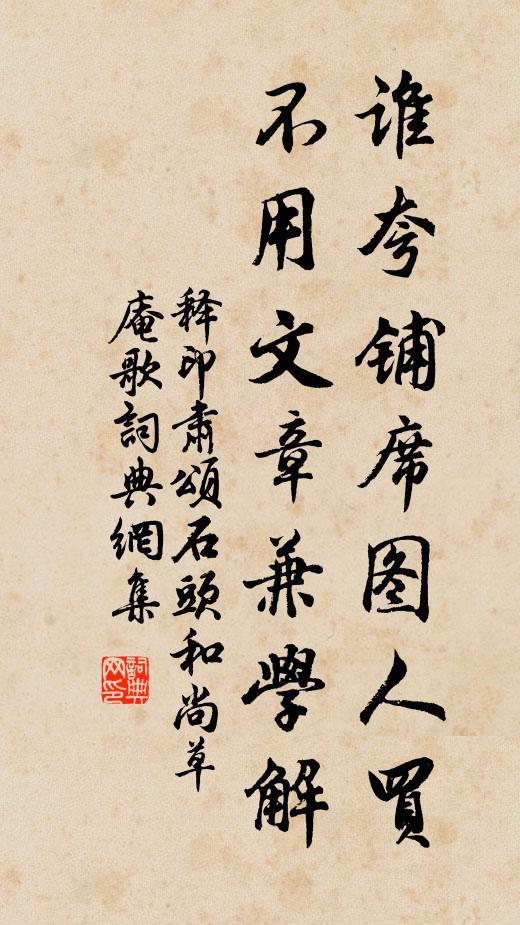 谁夸铺席图人買
不用文章兼學解
释印肃頌石頭和尚草
庵歌詞典網集
詞典网印